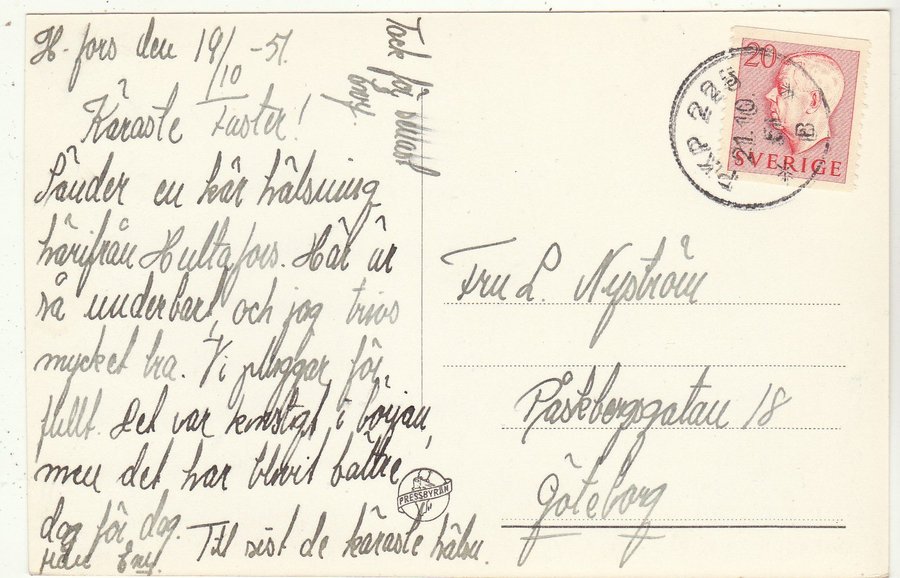 H-fors den 19/10 -51.
Käraste Faster!
Sänder en kär hälsning
härifrån Hultafors. Här är
så underbart, och jag trivs
mycket bra. Vi pluggar för
fullt. Det var konstigt i början,
men det har blivit bättre
dag för dag.
Till sist de käraste häls.
från
Tack för
20
SVERIGE
PKP 225
21.10
51
B
Fru L. Nyström
Påskbergsgatan 18
Göteborg
PRESSBYRÅN